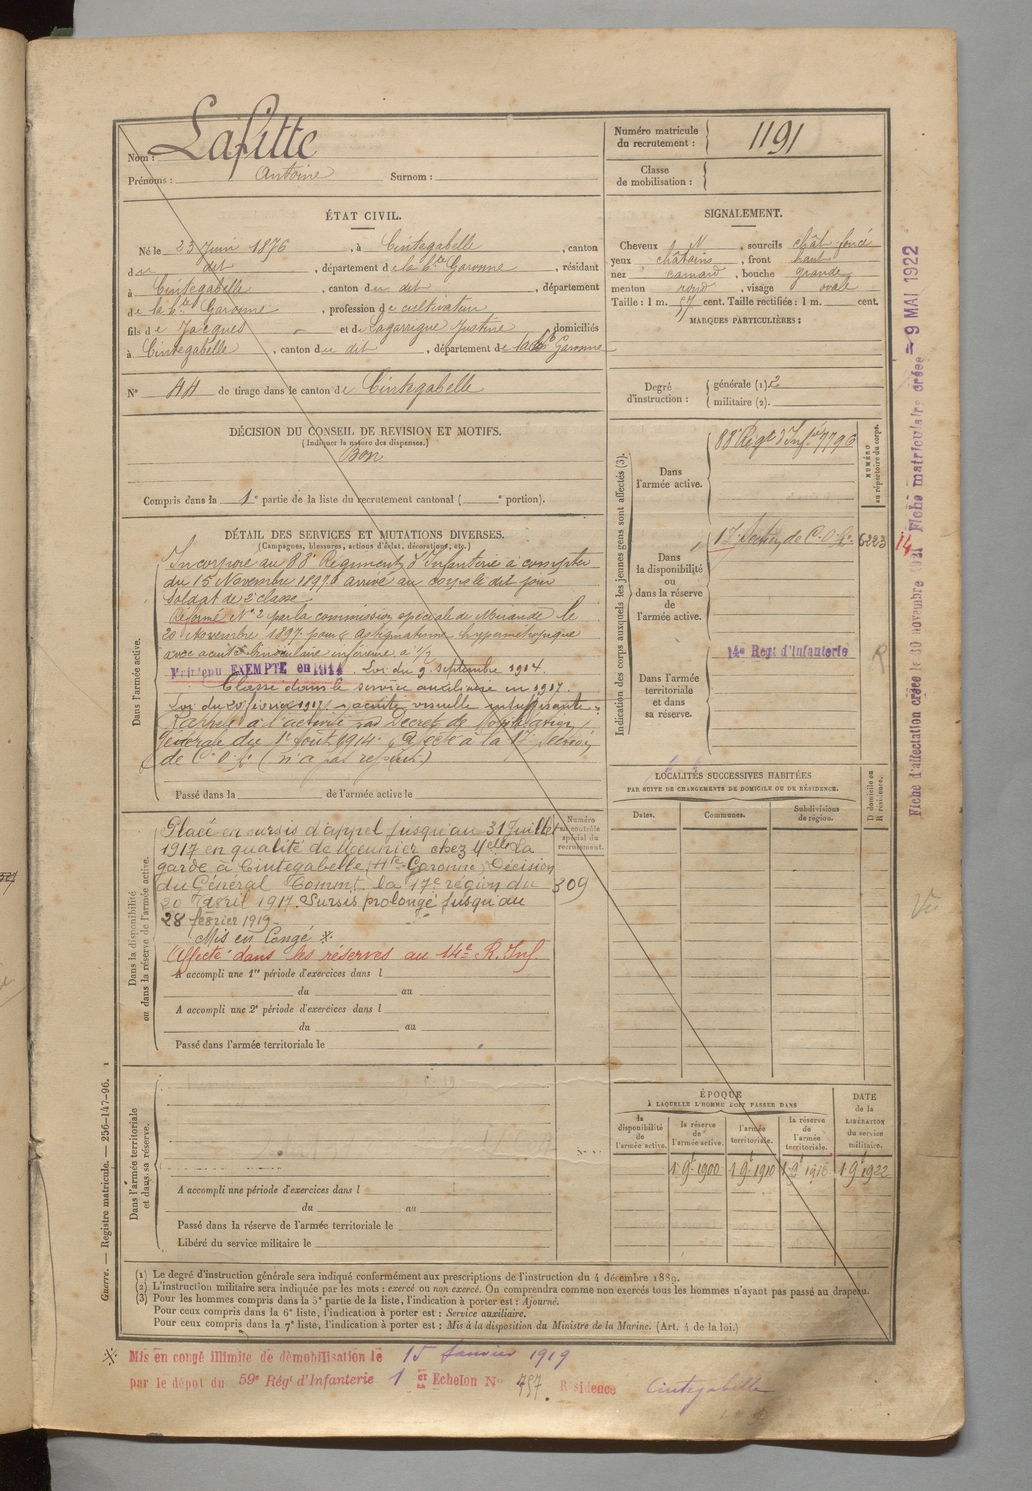 Nom : Lafitte
Prénoms : Antoine Surnom :
Numéro matricule du recrutement : 1191
Classe de mobilisation :
ÉTAT CIVIL.
Né le 23 Juin 1876, à Cintegabelle, canton
du dit, département de la hte Garonne, résidant
à Cintegabelle, canton du dit, département
de la hte Garonne, profession de cultivateur
fils de Jacques et de Lagarrigue Justine, domiciliés
à Cintegabelle, canton du dit, département de la hte Garonne
N° 44 de tirage dans le canton de Cintegabelle
SIGNALEMENT.
Cheveux N, sourcils chât foncé
yeux châtains, front haut
nez camard, bouche grande
menton rond, visage ovale
Taille : 1 m. 57 cent. Taille rectifiée : 1 m. cent.
MARQUES PARTICULIÈRES :
Degré d'instruction : générale (1) 2
militaire (2).
DÉCISION DU CONSEIL DE REVISION ET MOTIFS.
(Indiquer la nature des dispenses.)
Bon
Compris dans la 1e partie de la liste du recrutement cantonal ( e portion).
DÉTAIL DES SERVICES ET MUTATIONS DIVERSES.
(Campagnes, blessures, actions d'éclat, décorations, etc.)
Dans l'armée active.
Incorporé au 88e Régiment d'Infanterie à compter
du 15 Novembre 1897 arrivé au corps le dit jour
Soldat de 2e classe
Réformé N° 2 par la commission spéciale de Mirande le
20 Novembre 1897 pour astigmatisme hypermétropique
avec acuité binoculaire inférieure à 1/2
Maintenu EXEMPTÉ en 1914. Loi du 9 septembre 1914.
Classé dans le service auxiliaire en 1917.
Loi du 20 février 1917. acuité visuelle insuffisante.
Rappelé à l'activité par Décret de Mobilisation
Générale du 1er Août 1914. Affecté à la 17e Section
de C.O.A. (n'a pas rejoint.)
Passé dans la de l'armée active le
Dans la disponibilité ou dans la réserve de l'armée active.
Numéro au contrôle spécial du recrutement.
309
Placé en sursis d'appel jusqu'au 31 Juillet
1917 en qualité de Meunier chez Melle La
garde à Cintegabelle (Hte Garonne) Décision
du Général Commt la 17e région du
20 Avril 1917. Sursis prolongé jusqu'au
28 février 1919
Mis en Congé ※
Affecté dans les réserves au 14e R. Inf
A accompli une 1re période d'exercices dans l
du au
A accompli une 2e période d'exercices dans l
du au
Passé dans l'armée territoriale le
Dans l'armée territoriale et dans sa réserve.
A accompli une période d'exercices dans l
du au
Passé dans la réserve de l'armée territoriale le
Libéré du service militaire le
Indication des corps auxquels les jeunes gens sont affectés (3).
NUMÉRO au répertoire du corps.
Dans l'armée active.
88e Régt d'Infrie 7796
Dans la disponibilité ou dans la réserve de l'armée active.
17e Section de C.O.A. 6223
14
14e Régt d'Infanterie R
Dans l'armée territoriale et dans sa réserve.
LOCALITÉS SUCCESSIVES HABITÉES
PAR SUITE DE CHANGEMENTS DE DOMICILE OU DE RÉSIDENCE.
D domicile ou R résidence.
Dates. Communes. Subdivisions de région.
ÉPOQUE
À LAQUELLE L'HOMME DOIT PASSER DANS
la disponibilité de l'armée active.
la réserve de l'armée active.
l'armée territoriale.
la réserve de l'armée territoriale.
DATE de la LIBÉRATION du service militaire.
1 9bre 1900 1 9bre 1910 1 9bre 1916 1 9bre 1922
(1) Le degré d'instruction générale sera indiqué conformément aux prescriptions de l'instruction du 4 décembre 1889.
(2) L'instruction militaire sera indiquée par les mots : exercé ou non exercé. On comprendra comme non exercés tous les hommes n'ayant pas passé au drapeau.
(3) Pour les hommes compris dans la 5e partie de la liste, l'indication à porter est : Ajourné.
Pour ceux compris dans la 6e liste, l'indication à porter est : Service auxiliaire.
Pour ceux compris dans la 7e liste, l'indication à porter est : Mis à la disposition du Ministre de la Marine. (Art. 4 de la loi.)
※ Mis en congé illimité de démobilisation le 15 Janvier 1919
par le dépôt du 59e Régt d'Infanterie 1er Echelon N° 457. Résidence Cintegabelle
Guerre. — Registre matricule. — 256-147-96.
Fiche d'affectation créée le 30 novembre 1921 Fiche matriculaire créée — 9 MAI 1922
Vu